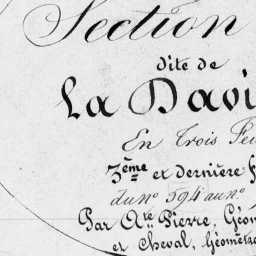 Section
dite de
La Davi
En Trois Feu
3ème et dernière f
du n° 594 au n°
Par Ate Pierre, Géom
et Cheval, Géomètre